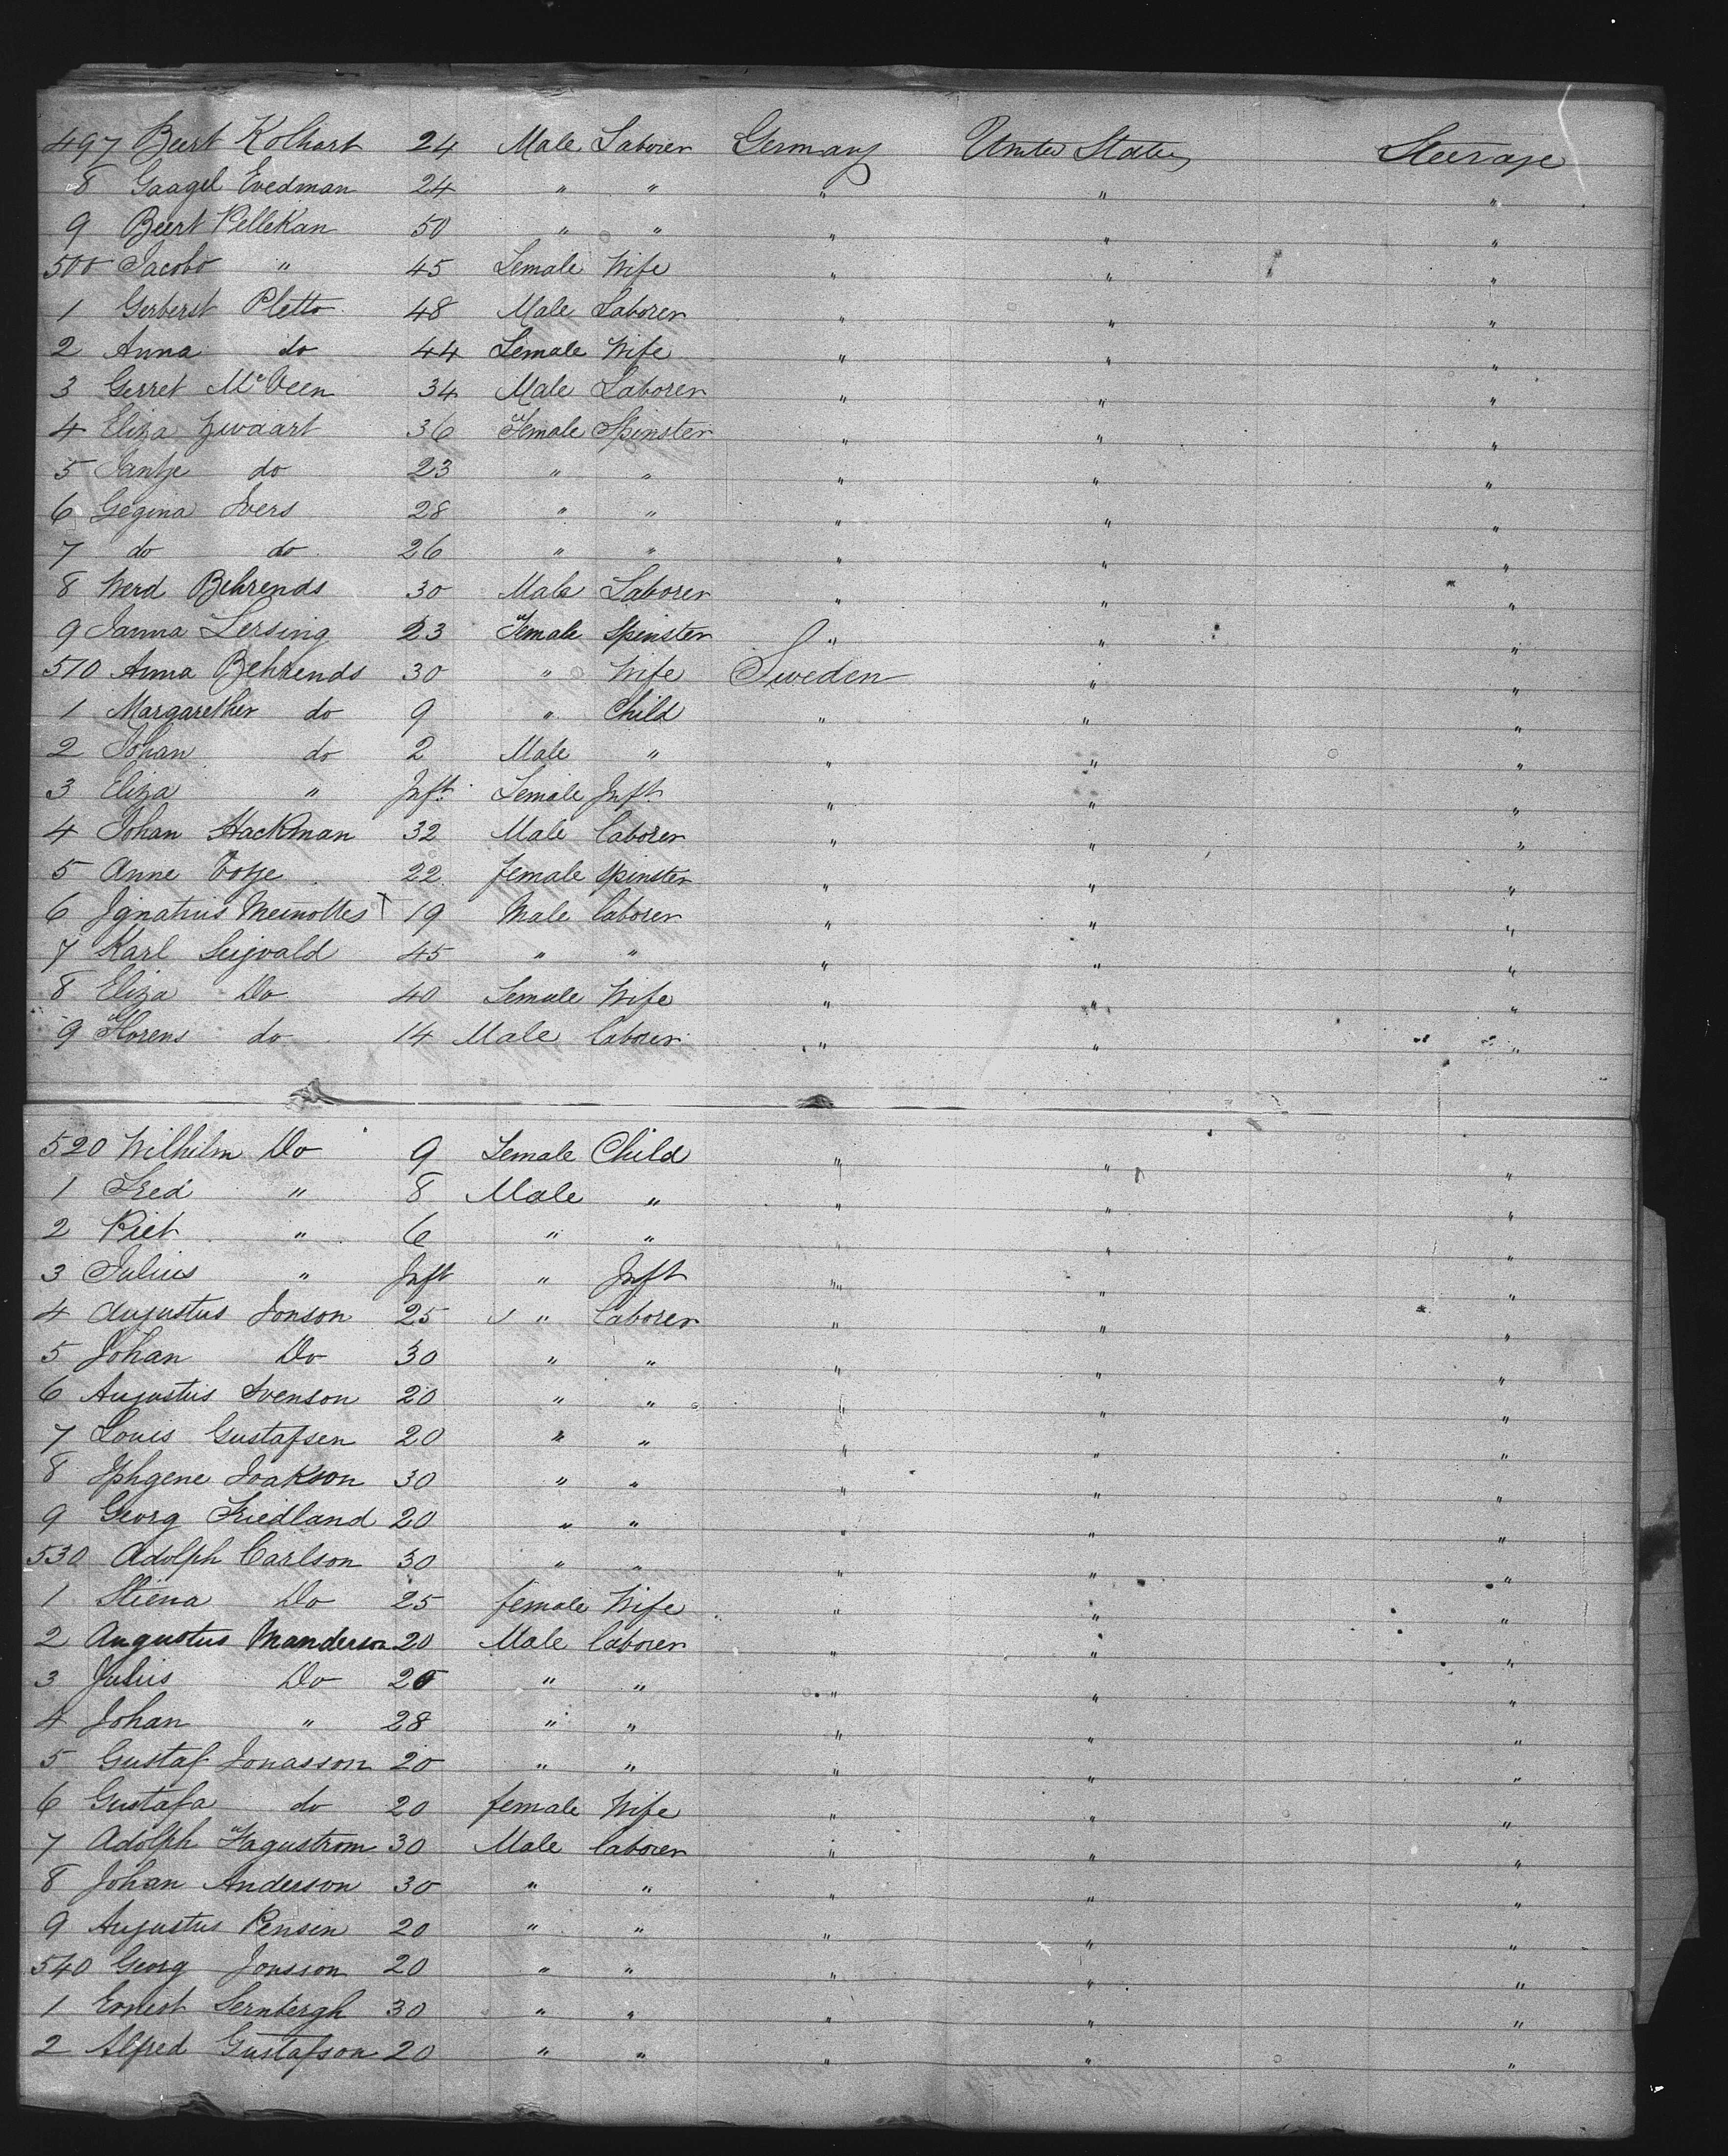 497 Beert Kolhart 24 Male Laborer Germany United States Steerage
8 Gaagel Evedman 24 " " " " "
9 Beert Pellekan 50 " " " " "
500 Jacobo " 45 Female Wife " " "
1 Gerberst Pletto 48 Male Laborer " " "
2 Anna do 44 Female Wife " " "
3 Gerret McVeen 34 Male Laborer " " "
4 Eliza Zwaart 36 Female Spinster " " "
5 Jantje do 23 " " " " "
6 Gegina Ivers 28 " " " " "
7 do do 26 " " " " "
8 Werd Behrends 30 Male Laborer " " "
9 Janna Lersing 23 Female Spinster " " "
510 Anna Behrends 30 " Wife Sweden " "
1 Margarether do 9 " Child " " "
2 Johan do 2 Male " " " "
3 Eliza " Inft. Female Inft. " " "
4 Johan Hackman 32 Male laborer " " "
5 Anne Votje 22 female spinster " " "
6 Ignatius Meinolles 19 Male laborer " " "
7 Karl Seigvald 45 " " " " "
8 Eliza Do 40 Female Wife " " "
9 Florens do 14 Male laborer " " "
520 Wilhilm Do 9 Female Child " " "
1 Fred " 8 Male " " " "
2 Piet " 6 " " " " "
3 Julius " Inft " Inft " " "
4 Augustus Jonson 25 " laborer " " "
5 Johan Do 30 " " " " "
6 Augustus Svenson 20 " " " " "
7 Louis Gustafsen 20 " " " " "
8 Iphgene Joakson 30 " " " " "
9 Georg Friedland 20 " " " " "
530 Adolph Carlson 30 " " " " "
1 Stiena Do 25 female Wife " " "
2 Augustus Manderson 20 Male laborer " " "
3 Julius Do 25 " " " " "
4 Johan " 28 " " " " "
5 Gustaf Jonasson 20 " " " " "
6 Gustafa do 20 female Wife " " "
7 Adolph Hagustrom 30 Male laborer " " "
8 Johan Anderson 30 " " " " "
9 Augustus Pensen 20 " " " " "
540 Georg Jonsson 20 " " " " "
1 Ernest Sernbergh 30 " " " " "
2 Alfred Gustafson 20 " " " " "